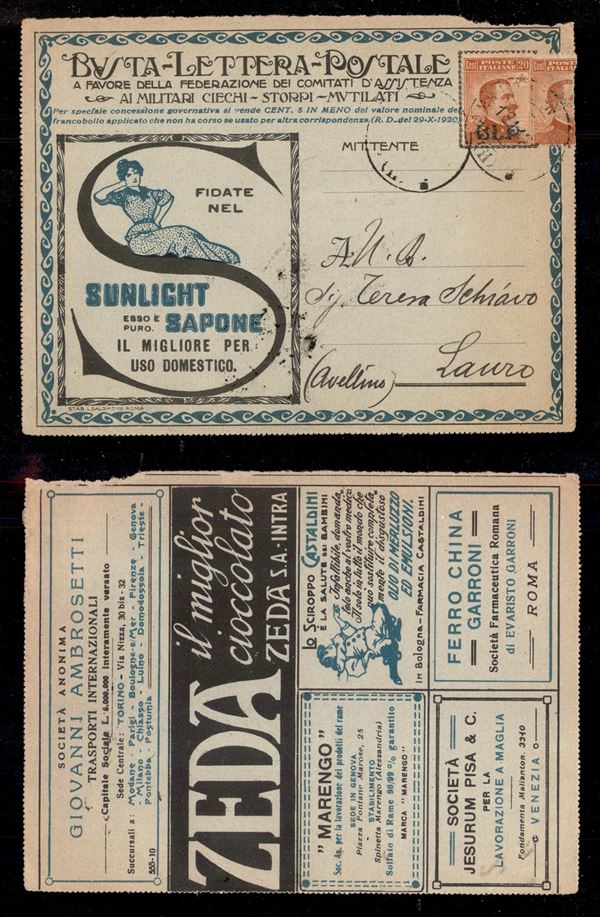 BUSTA-LETTERA-POSTALE
A FAVORE DELLA FEDERAZIONE DEI COMITATI D'ASSISTENZA
AI MILITARI CIECHI - STORPI - MUTILATI
Per speciale concessione governativa si vende CENT. 5 IN MENO del valore nominale del
francobollo applicato che non ha corso se usato per altra corrispondenza (R. D. del 29-X-1920)
Cent POSTE ITALIANE 20
Cent POSTE ITALIANE
BLP
MITTENTE
FIDATE
NEL
SUNLIGHT
ESSO È
PURO.
SAPONE
IL MIGLIORE PER
USO DOMESTICO.
STAB. L. SALOMONE ROMA
Sig Teresa Schiavo
Lauro
(Avellino)
SOCIETÀ ANONIMA
GIOVANNI AMBROSETTI
TRASPORTI INTERNAZIONALI
Capitale Sociale L. 6.000.000 interamente versato
Sede Centrale: TORINO - Via Nizza, 30 bis - 32
Succursali a: Modane - Parigi - Boulogne s/Mer - Firenze - Genova
- Milano - Chiasso - Luino - Domodossola - Trieste -
Pontebba - Postumia
555-10
ZEDA
il miglior
cioccolato
ZEDA S.A. - INTRA
Lo SCIROPPO CASTALDINI
È LA SALUTE DEI BAMBINI
Infallibile, domanda,
telo anche al vostro medico
È il solo in tutto il mondo che
può sostituire completa,
mente il disgustoso
OLIO DI MERLUZZO
ED EMULSIONI.
In Bologna - FARMACIA CASTALDINI
"MARENGO"
Soc. An. per la lavorazione dei prodotti del rame
SEDE IN GENOVA
Piazza Fontane Marose, 25
STABILIMENTO
Spinetta Marengo (Alessandria)
Solfato di Rame 98,99 % garantito
MARCA "MARENGO"
FERRO CHINA
GARRONI
Società Farmaceutica Romana
di EVARISTO GARRONI
ROMA
SOCIETÀ
JESURUM PISA & C.
PER LA
LAVORAZIONE A MAGLIA
Fondamenta Malcanton. 3340
VENEZIA